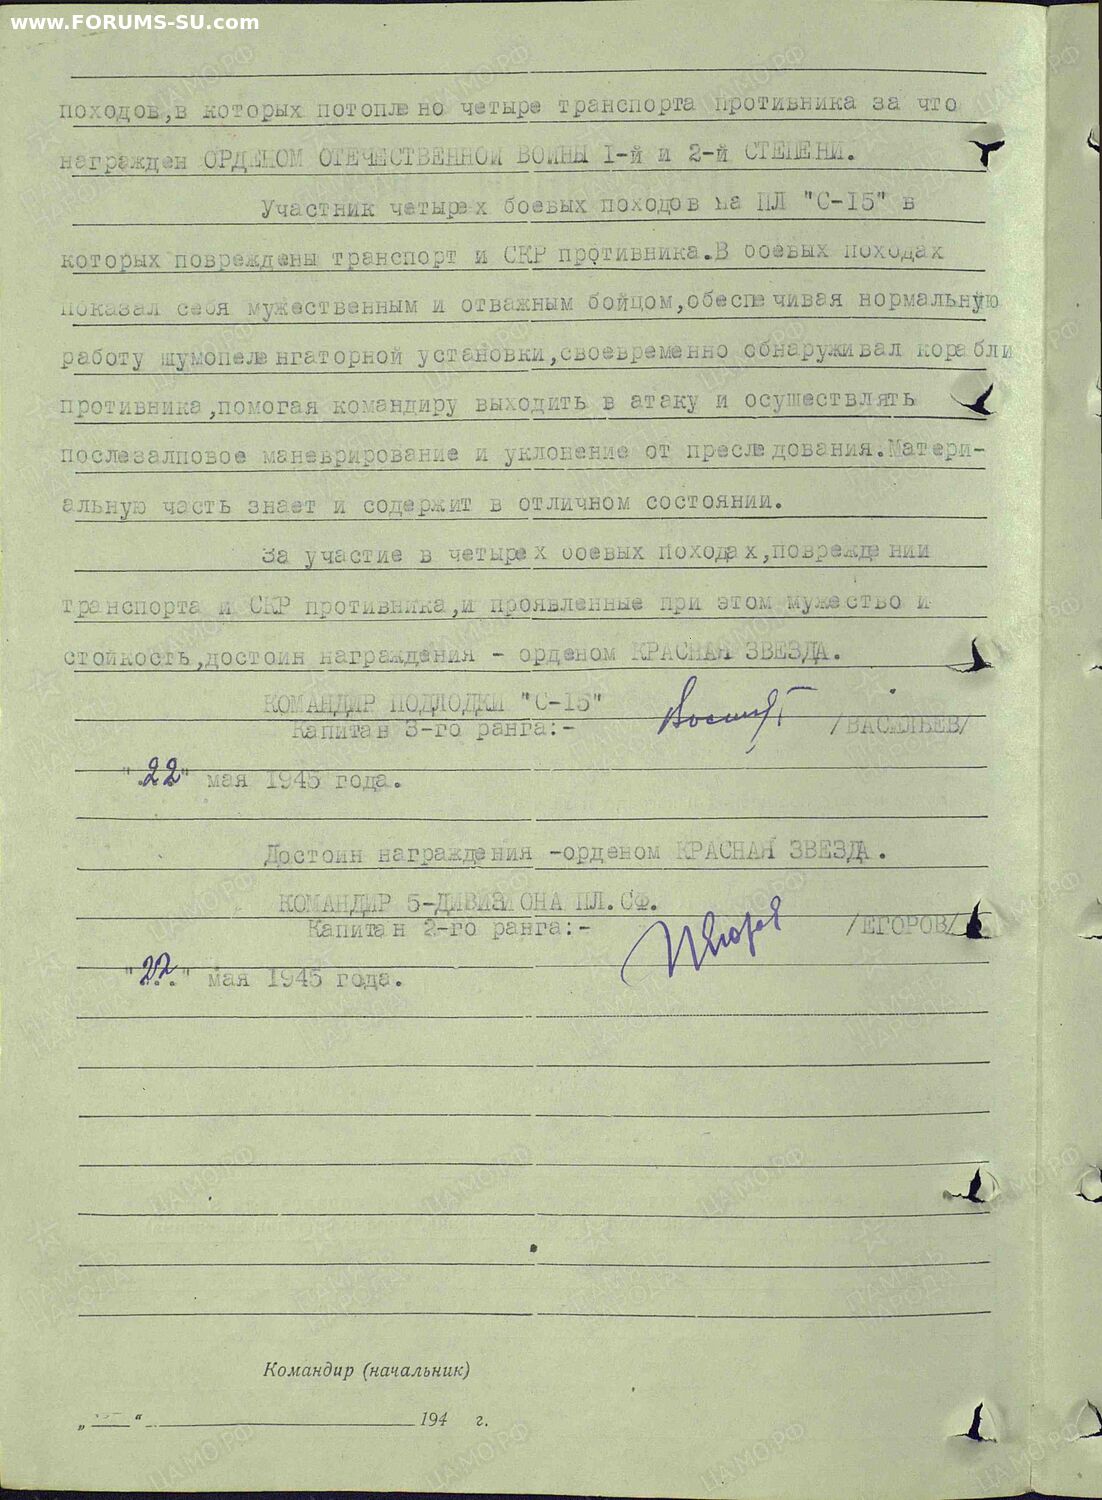 www.FORUMS-SU.com
походов,в которых потоплено четыре транспорта противника за что
награжден ОРДЕНОМ ОТЕЧЕСТВЕННОЙ ВОЙНЫ I-й и 2-й СТЕПЕНИ.
Участник четырех боевых походов на ПЛ "С-I5" в
которых повреждены транспорт и СКР противника.В боевых походах
показал себя мужественным и отважным бойцом,обеспечивая нормальную
работу шумопеленгаторной установки,своевременно обнаруживал корабли
противника,помогая командиру выходить в атаку и осушествлять
послезалповое маневрирование и уклонение от преследования.Матери-
альную часть знает и содержит в отличном состоянии.
За участие в четырех боевых походах,повреждении
транспорта и СКР противника,и проявленные при этом мужество и
стойкость,достоин награждения - орденом КРАСНАЯ ЗВЕЗДА.
КОМАНДИР ПОДЛОДКИ "С-I5"
Капитан 3-го ранга:- /ВАСИЛЬЕВ/
"22" мая I945 года.
Достоин награждения -орденом КРАСНАЯ ЗВЕЗДА.
КОМАНДИР 5-ДИВИЗИОНА ПЛ.СФ.
Капитан 2-го ранга:- /ЕГОРОВ/
"22" мая I945 года.
Командир (начальник)
„ “ 194 г.
ПАМЯТЬ НАРОДА
ЦАМО.РФ